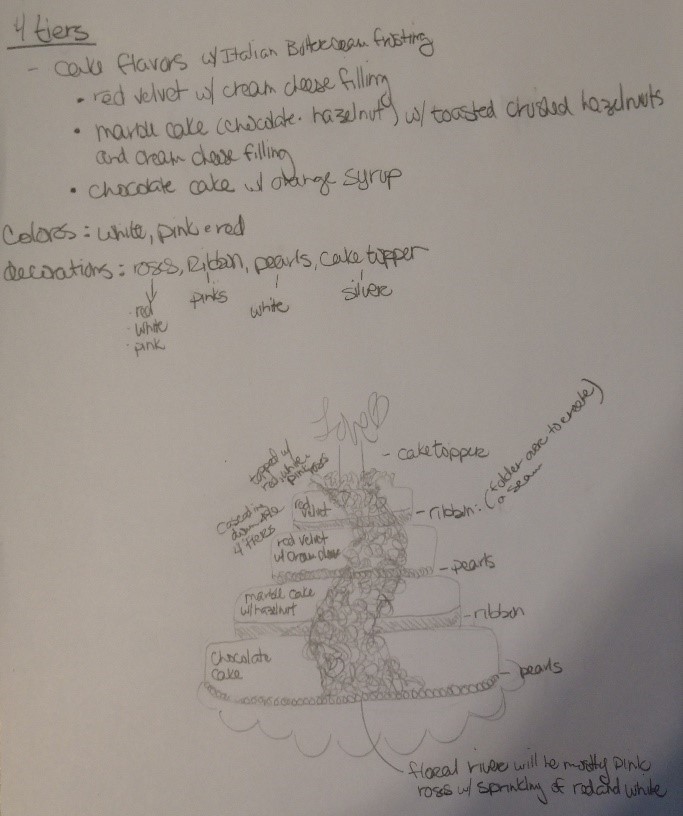 4 tiers
- cake flavors w/ Italian Buttercream frosting
• red velvet w/ cream cheese filling
• marble cake (chocolate. hazelnut) w/ toasted crushed hazelnuts
and cream cheese filling
• chocolate cake w/ orange syrup
Colors: white, pink e red
decorations: roses, Ribbon, pearls, cake topper
pinks
white
silver
· red
· white
· pink
Love
- cake topper
topped w/
red, white,
pink roses
cascading
down the
4 tiers
red
velvet
- ribbon: (folder over to create)
a seam
red velvet
w/ cream cheese
- pearls
marble cake
w/ hazelnut
- ribbon
Chocolate
cake
- pearls
floral river will be mostly pink
roses w/ sprinkling of red and white